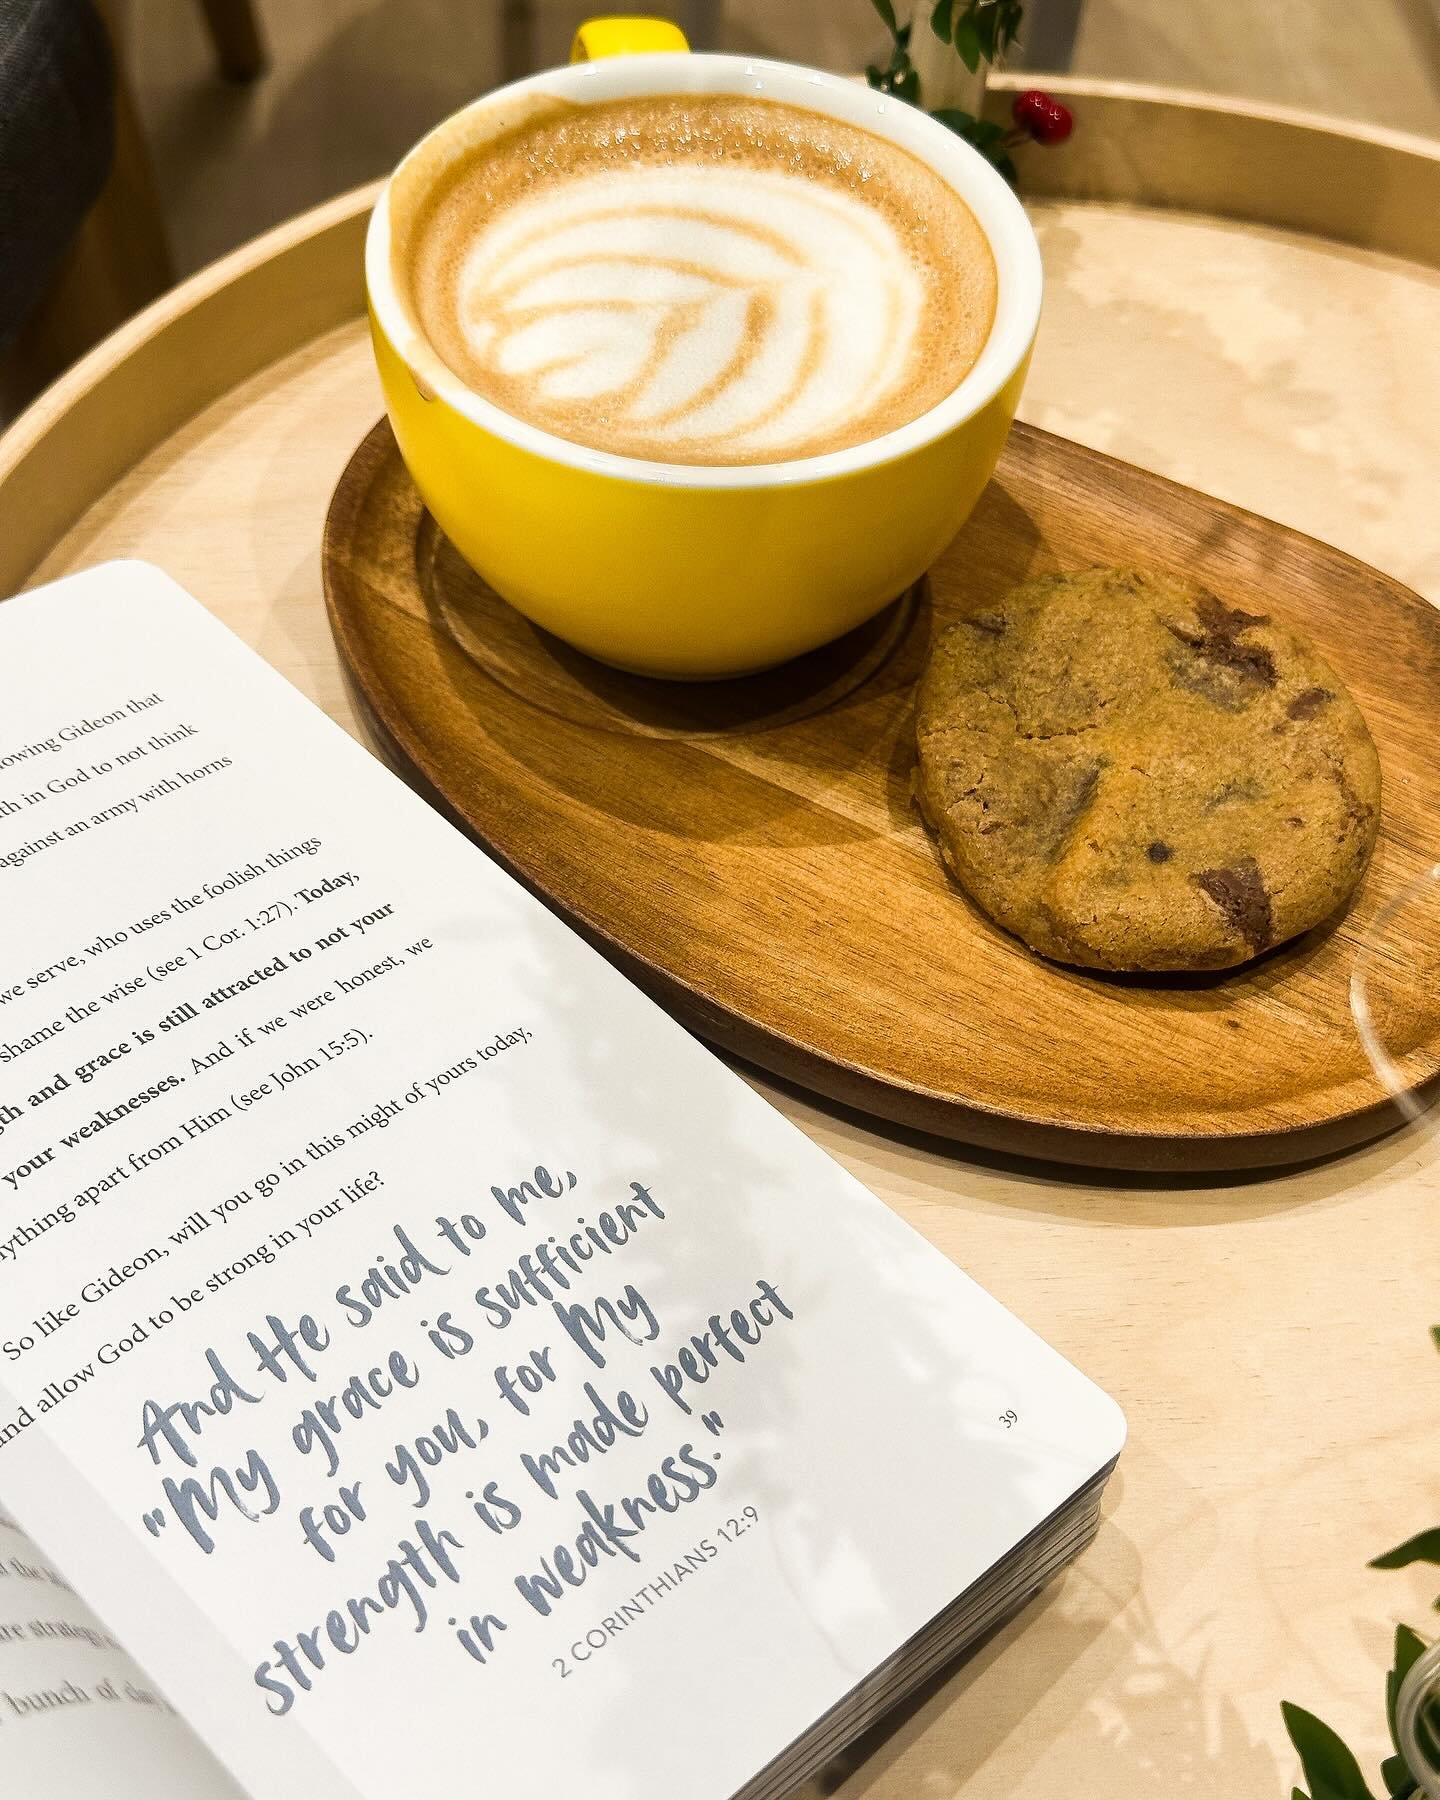 Gideon that
in God to not think
against an army with horns
we serve, who uses the foolish things
shame the wise (see 1 Cor. 1:27). Today,
and grace is still attracted to not your
your weaknesses. And if we were honest, we
apart from Him (see John 15:5).
So like Gideon, will you go in this might of yours today,
and allow God to be strong in your life?
And He said to me,
"My grace is sufficient
for you, for My
strength is made perfect
in weakness."
2 CORINTHIANS 12:9
39
strategy
bunch of